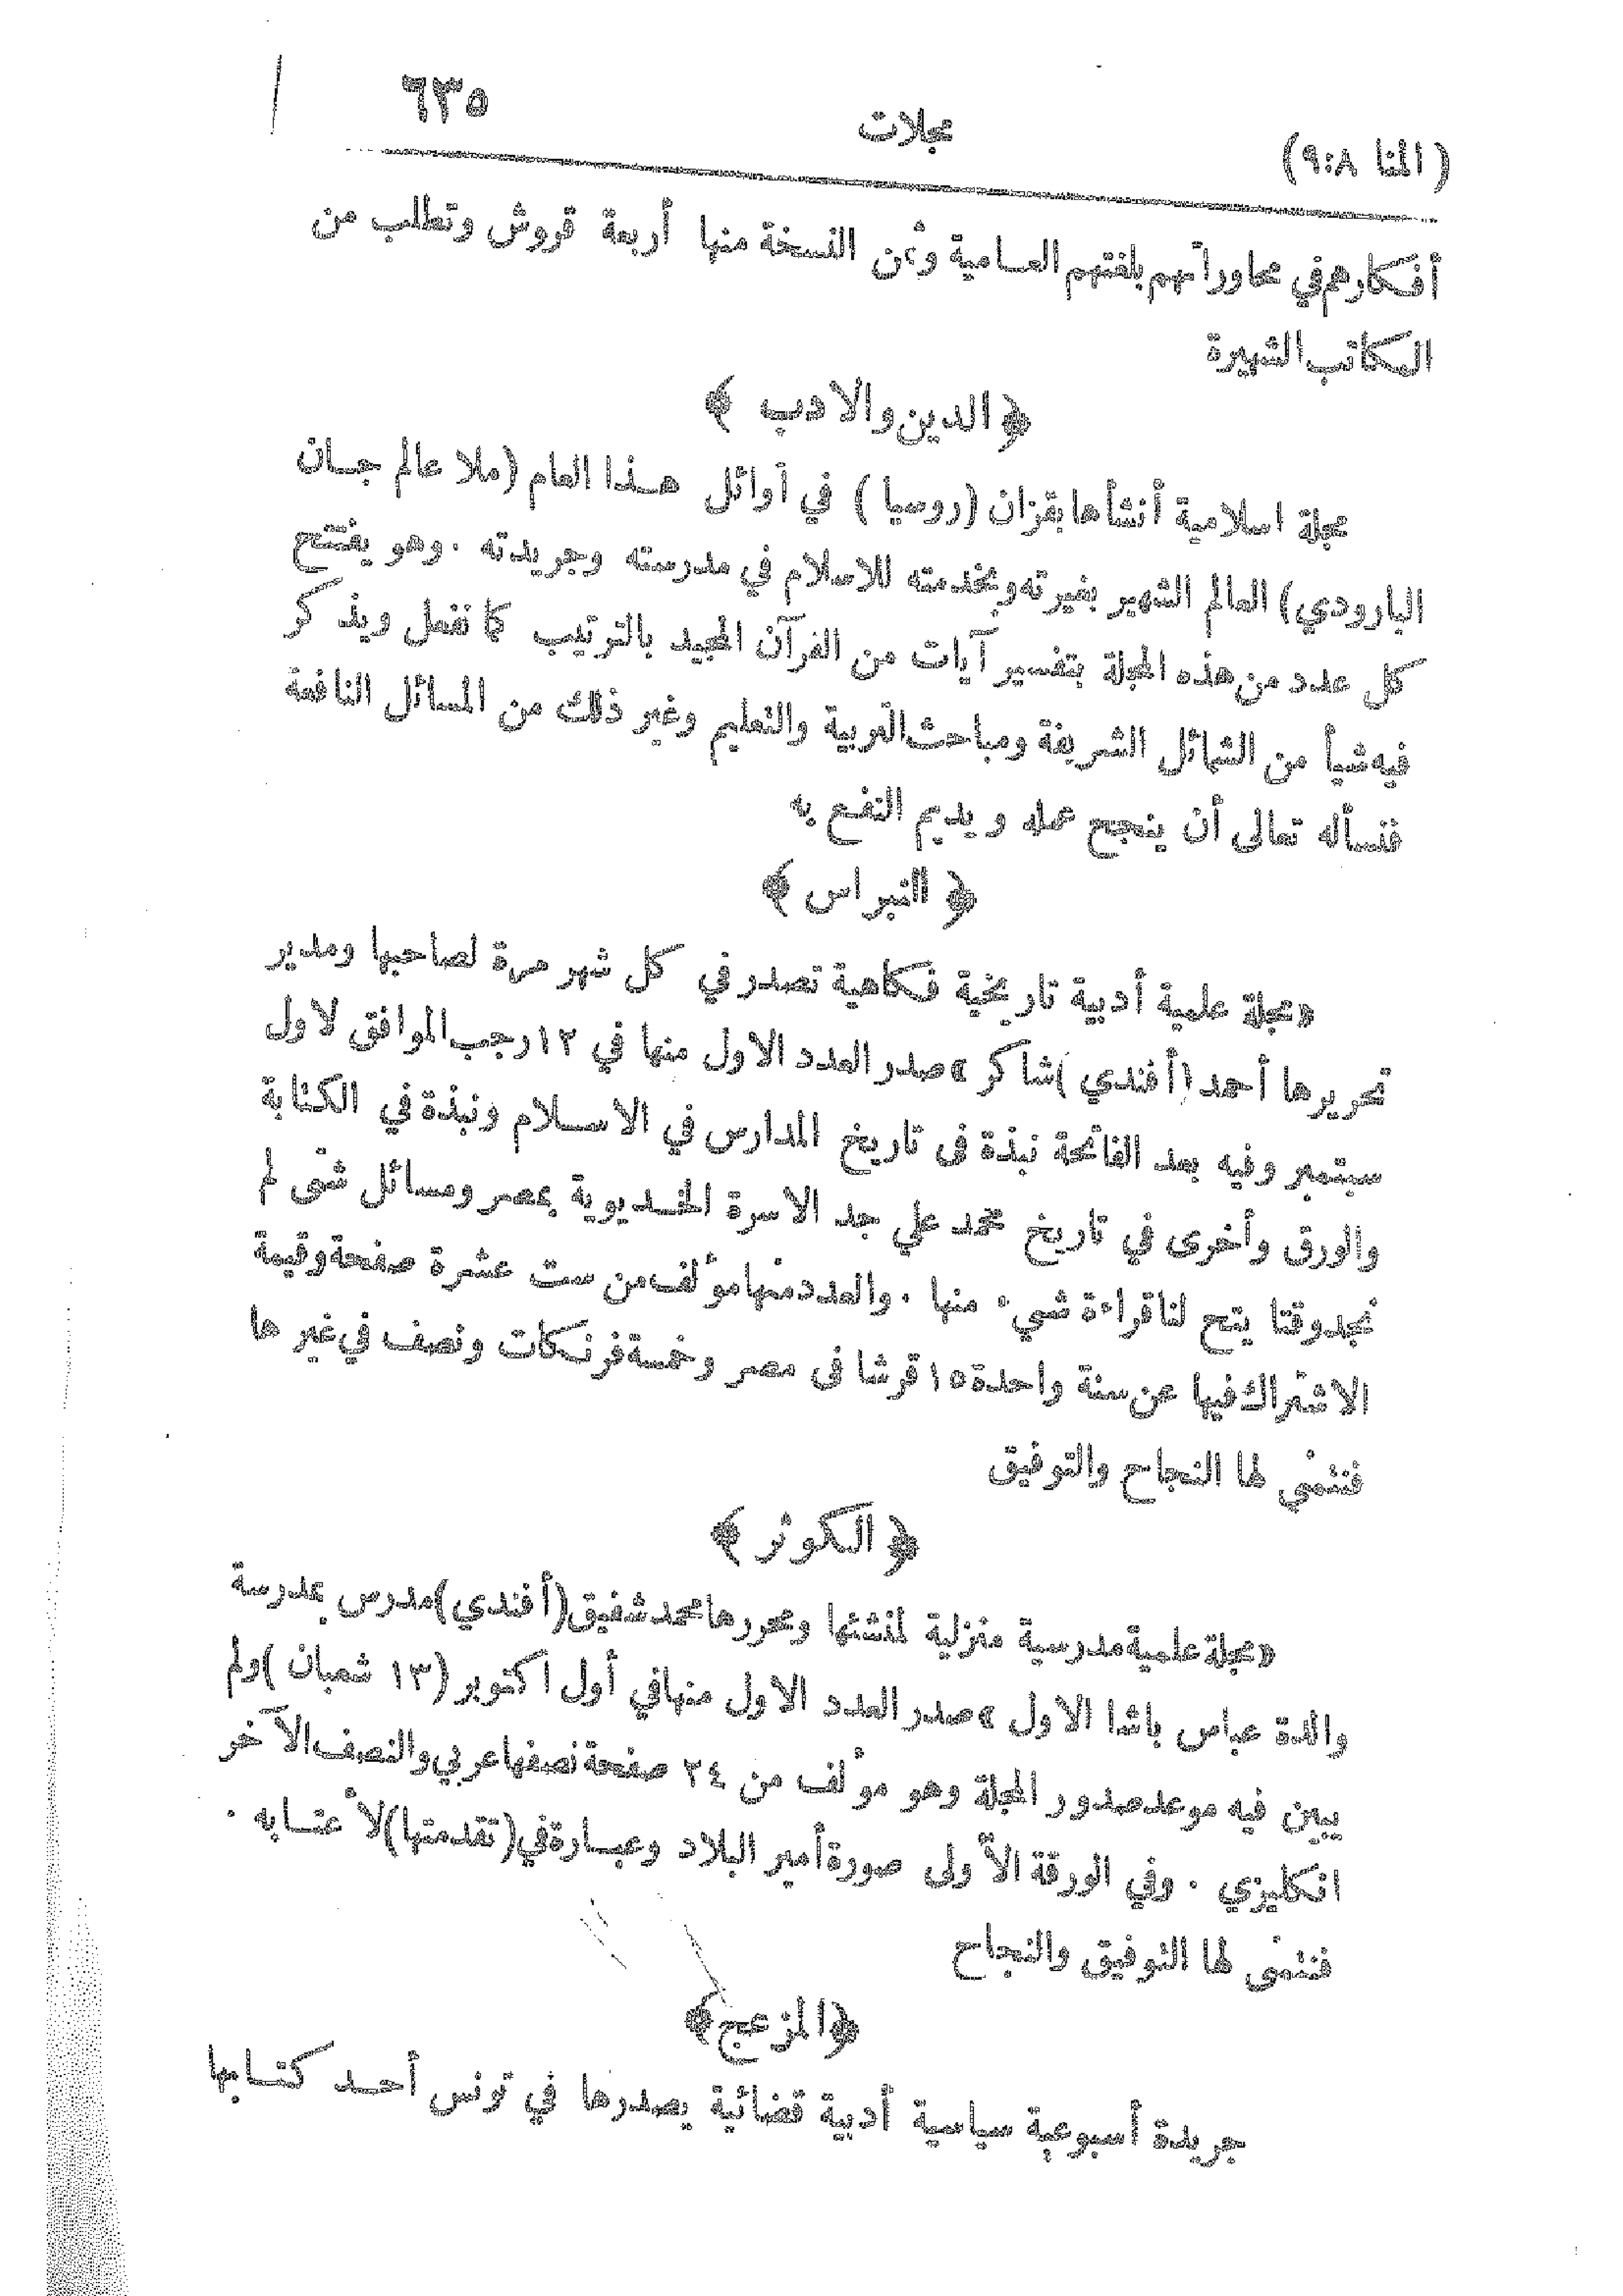 (المنا ٩:٨) مجلات ٦٣٥
أفكارهم في محاوراتهم بلغتهم العامية وثمن النسخة منها أربعة قروش وتطلب من
المكاتب الشهيرة
﴿ الدين والادب ﴾
مجلة اسلامية أنشأها بقزان (روسيا) في أوائل هذا العام (ملا عالم جان
البارودي) العالم الشهير بغيرته وبخدمته للاسلام في مدرسته وجريدته . وهو يفتتح
كل عدد من هذه المجلة بتفسير آيات من القرآن المجيد بالترتيب كما نفعل ويذكر
فيه شيأ من الشمائل الشريفة ومباحث التربية والتعليم وغير ذلك من المسائل النافعة
فنسأله تعالى أن ينجح عمله ويديم النفع به
﴿ النبراس ﴾
«مجلة علمية أدبية تاريخية فكاهية تصدر في كل شهر مرة لصاحبها ومدير
تحريرها أحمد (أفندي) شاكر» صدر العدد الاول منها في ١٢ رجب الموافق لاول
سبتمبر وفيه بعد الفاتحة نبذة فى تاريخ المدارس في الاسلام ونبذة في الكتابة
والورق وأخرى في تاريخ محمد علي جد الاسرة الخديوية بمصر ومسائل شتى لم
نجد وقتا يتح لنا قراءة شيء منها . والعدد منها مؤلف من ست عشرة صفحة وقيمة
الاشتراك فيها عن سنة واحدة ١٥ قرشا فى مصر وخمسة فرنكات ونصف في غيرها
فنتمنى لها النجاح والتوفيق
﴿ الكوثر ﴾
«مجلة علمية مدرسية منزلية لمنشئها ومحررها محمد شفيق (أفندي) مدرس بمدرسة
والدة عباس باشا الاول» صدر العدد الاول منها في أول اكتوبر (١٣ شعبان) ولم
يبين فيه موعد صدور المجلة وهو مؤلف من ٢٤ صفحة نصفها عربي والنصف الآخر
انكليزي . وفي الورقة الأولى صورة أمير البلاد وعبارة في (تقدمتها) لأعتابه .
فنتمنى لها التوفيق والنجاح
﴿المزعج﴾
جريدة أسبوعية سياسية أدبية قضائية يصدرها في تونس أحد كتابها